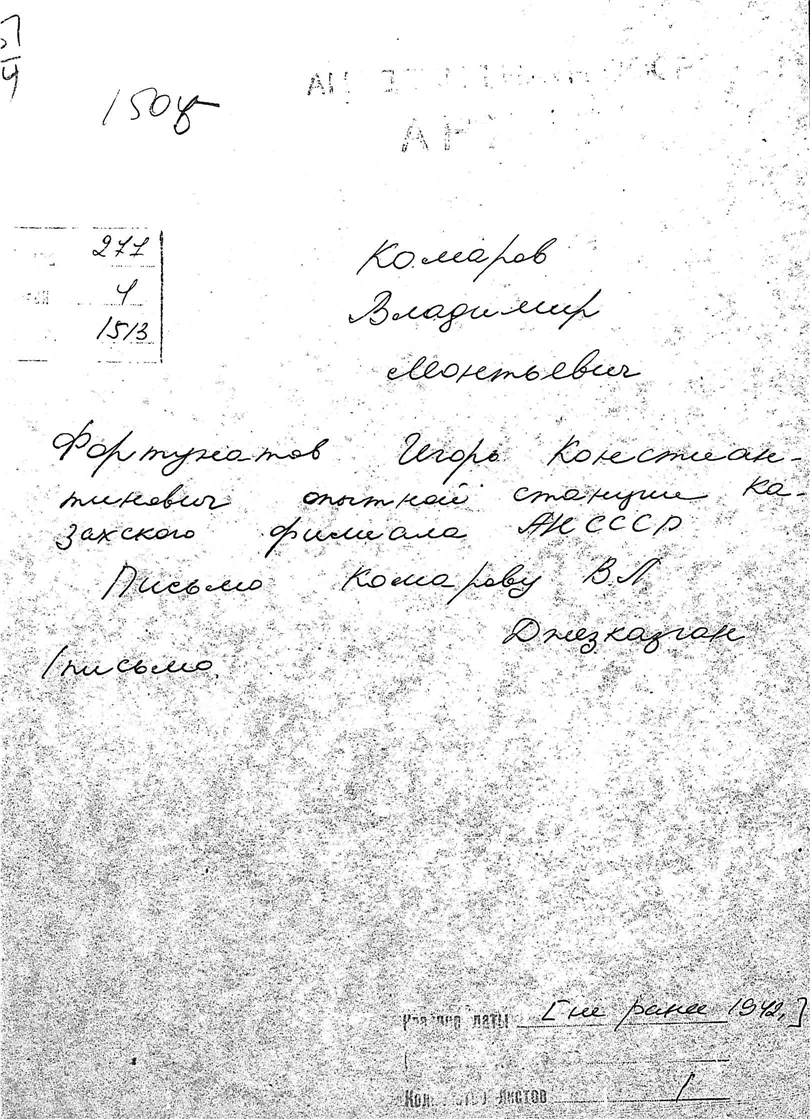 150
277
4
1513
Комаров
Владимир
Леонтьевич
Фортунатов Игорь Констан-
тинович опытной станции Ка-
захского филиала АН СССР
Письмо Комарову ВЛ
Джезказган
1 письмо
Крайние даты [не ранее 1942,]
Количество листов 1